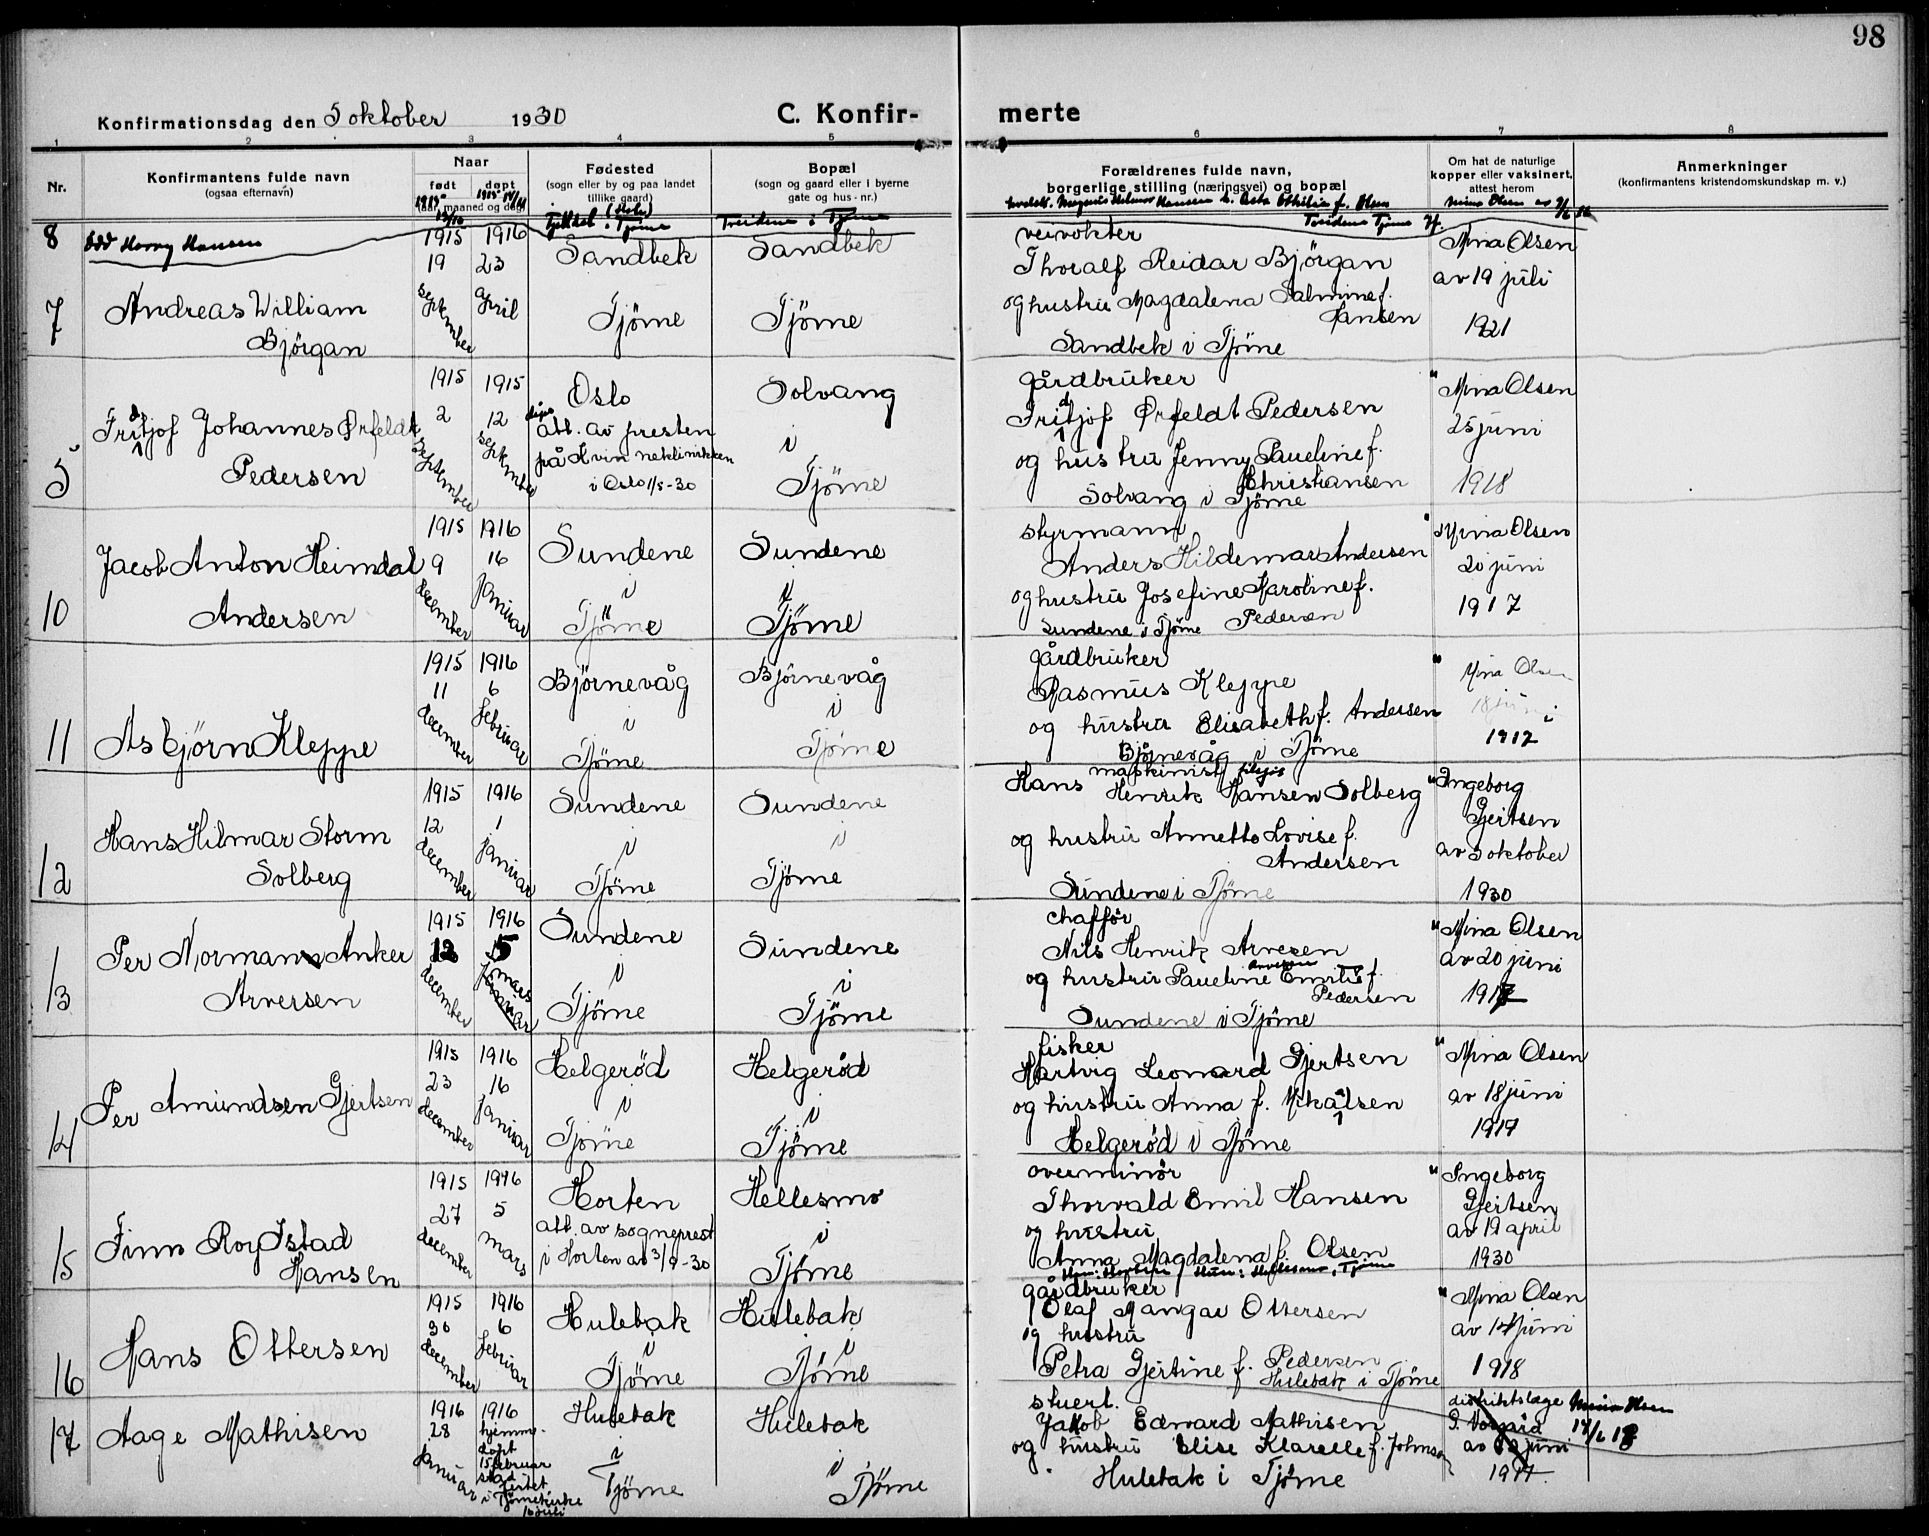 98
Konfirmationsdag den 5 oktober 1930
C. Konfirmerte
1 2 3 4 5 6 7 8
Nr.
Konfirmantens fulde navn
(ogsaa efternavn)
Naar
født
døpt
(aar, maaned og dag)
Fødested
(sogn eller by og paa landet
tillike gaard)
Bopæl
(sogn og gaard eller i byerne
gate og hus-nr.)
Forældrenes fulde navn,
borgerlige stilling (næringsvei) og bopæl
Om hat de naturlige
kopper eller vaksinert,
attest herom
Anmerkninger
(konfirmantens kristendomskundskap m. v.)
8
Odd Harry Hansen
1915
i Tjøme
i Tjøme
Magnus Helmer Hansen
f. Olsen
Tjøme
Mina Olsen av
7
Andreas William
Bjørgan
1915
19
september
1916
23
april
Sandbek
Tjøme
Sandbek
Tjøme
veivokter
Thoralf Reidar Bjørgan
og hustru Magdalena Salmine f.
Hansen
Sandbek i Tjøme
Mina Olsen
av 19 juli
1921
5
Fridtjof Johannes Ørfeldt
Pedersen
1915
2
september
1915
12
september
Oslo
att. av presten
på Kvinneklinikken
i Oslo 1/8-30
Solvang
i
Tjøme
gårdbruker
Fridtjof Ørfeldt Pedersen
og hustru Jenny Pauline f.
Christiansen
Solvang i Tjøme
" Mina Olsen
25 juni
1918
10
Jacob Anton Heimdal
Andersen
1915
9
december
1916
16
januar
Sundene
i
Tjøme
Sundene
i
Tjøme
styrmann
Anders Hildemar Andersen
og hustru Josefine Karoline f.
Pedersen
Sundene i Tjøme
" Mina Olsen
20 juni
1917
11
Asbjørn Kleppe
1915
11
december
1916
6
februar
Bjørnevåg
i
Tjøme
Bjørnevåg
i
Tjøme
gårdbruker
Rasmus Kleppe
og hustru Elisabeth f. Andersen
Bjørnevåg i Tjøme
" Mina Olsen
18 juni
1917
12
Hans Hilmar Storm
Solberg
1915
12
december
1916
1
januar
Sundene
i
Tjøme
Sundene
i
Tjøme
maskinist
Hans Henrik Hansen Solberg
og hustru Annette Lovise f.
Andersen
Sundene i Tjøme
" Ingeborg
Gjertsen
av 3 oktober
1930
13
Per Norman Anker
Arvesen
1915
12
december
1916
5
mars
januar
Sundene
i
Tjøme
Sundene
i
Tjøme
chaffør
Nils Henrik Arvesen
og hustru Pauline Emilie f.
Pedersen
Sundene i Tjøme
" Mina Olsen
av 20 juni
1917
14
Per Amundsen Gjertsen
1915
23
december
1916
16
januar
Helgerød
i
Tjøme
Helgerød
i
Tjøme
fisker
Hartvig Leonard Gjertsen
og hustru Anna f. Mikalsen
Helgerød i Tjøme
" Mina Olsen
av 18 juni
1917
15
Finn Roy Istad
Hansen
1915
27
december
1916
5
mars
Horten
att. av sogneprest
i Horten av 3/9-30
Hellesmo
i
Tjøme
overminør
Thorvald Emil Hansen
og hustru
Anna Magdalena f. Olsen
Han: Horten Hun: Hellesmo, Tjøme
" Ingeborg
Gjertsen
av 19 april
1930
16
Hans Ottersen
1915
30
december
1916
6
februar
Hulebak
i
Tjøme
Hulebak
i
Tjøme
gårdbruker
Olaf Mangar Ottersen
og hustru
Petra Gjertine f. Pedersen
Hulebak i Tjøme
" Mina Olsen
av 14 juni
1918
17
Aage Mathisen
1916
28
januar
1916
hjemme-
døpt
15 februar
stad
festet
i Tjøme kirke
16 juli
Hulebak
i
Tjøme
Hulebak
i
Tjøme
stuert
Jakob Edvard Mathisen
og hustru Elise Klarelle f. Johnsen
Hulebak i Tjøme
distriktslæge
av 12 juni
1917
Mina Olsen
17/6 18